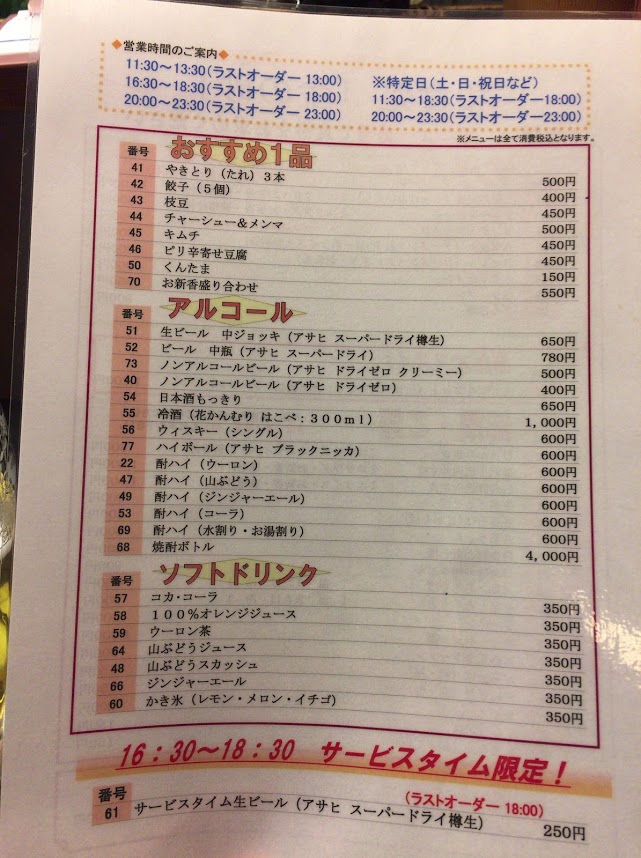 ◆営業時間のご案内◆
11:30～13:30(ラストオーダー 13:00)
16:30～18:30(ラストオーダー 18:00)
20:00～23:30(ラストオーダー 23:00)
※特定日(土・日・祝日など)
11:30～18:30(ラストオーダー18:00)
20:00～23:30(ラストオーダー23:00)
※メニューは全て消費税込となります。
番号 おすすめ１品
41 やきとり（たれ）３本 500円
42 餃子（５個） 400円
43 枝豆 450円
44 チャーシュー&メンマ 500円
45 キムチ 450円
46 ピリ辛寄せ豆腐 450円
50 くんたま 150円
70 お新香盛り合わせ 550円
番号 アルコール
51 生ビール 中ジョッキ（アサヒ スーパードライ樽生） 650円
52 ビール 中瓶（アサヒ スーパードライ） 780円
73 ノンアルコールビール（アサヒ ドライゼロ クリーミー） 500円
40 ノンアルコールビール（アサヒ ドライゼロ） 400円
54 日本酒もっきり 650円
55 冷酒（花かんむり はこべ：３００ｍｌ） 1,000円
56 ウィスキー（シングル） 600円
77 ハイボール（アサヒ ブラックニッカ） 600円
22 酎ハイ（ウーロン） 600円
47 酎ハイ（山ぶどう） 600円
49 酎ハイ（ジンジャーエール） 600円
53 酎ハイ（コーラ） 600円
69 酎ハイ（水割り・お湯割り） 600円
68 焼酎ボトル 4,000円
番号 ソフトドリンク
57 コカ・コーラ 350円
58 １００％オレンジジュース 350円
59 ウーロン茶 350円
64 山ぶどうジュース 350円
48 山ぶどうスカッシュ 350円
66 ジンジャーエール 350円
60 かき氷（レモン・メロン・イチゴ） 350円
16：30～18：30 サービスタイム限定！
(ラストオーダー 18:00)
番号
61 サービスタイム生ビール（アサヒ スーパードライ樽生） 250円